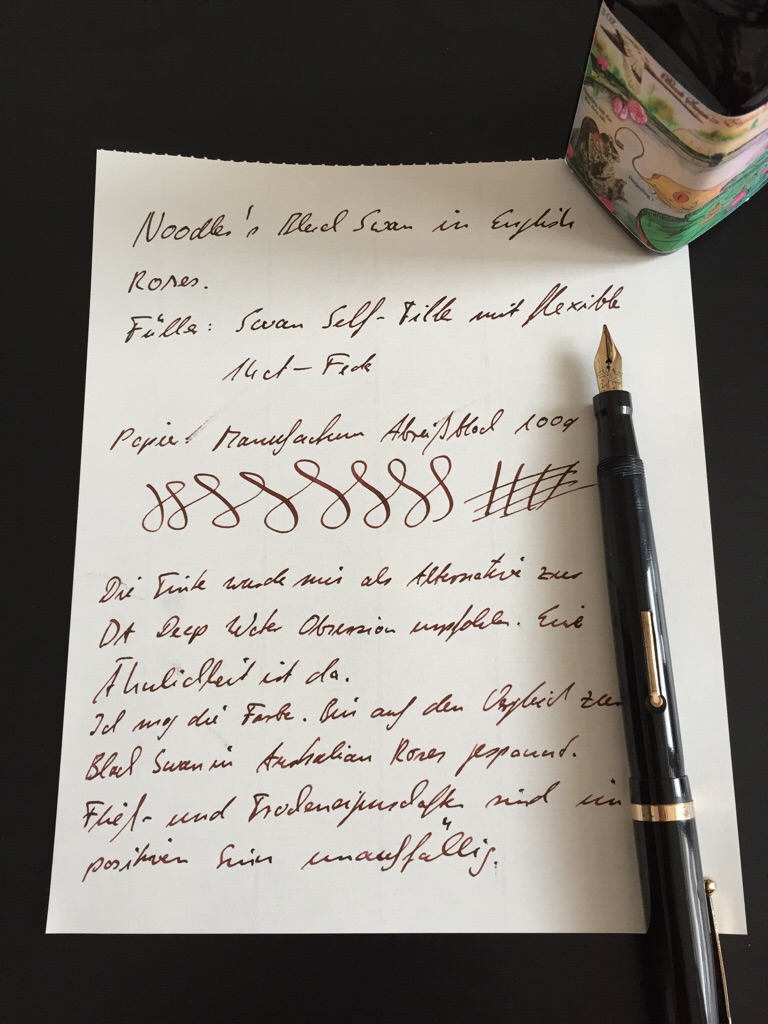 Noodler's Black Swan in English
Roses.
Füller: Swan Self-Filler mit flexibler
14ct-Feder
Papier: Manufactum Abreißblock 100g
Die Tinte wurde mir als Alternative zur
DA Deep Water Obsession empfohlen. Eine
Ähnlichkeit ist da.
Ich mag die Farbe. Bin auf den Vergleich zur
Black Swan in Australian Roses gespannt.
Fließ- und Trockeneigenschaften sind im
positiven Sinn unauffällig.